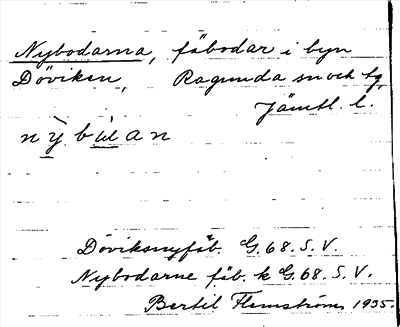 Nybodarna, fäbodar i byn
Döviken, Ragunda sn och tg,
Jämtl. l.
Döviksnyfäb. G. 68. S. V.
Nybodarne fäb. k G. 68. S. V.
Bertil Flemström 1935.